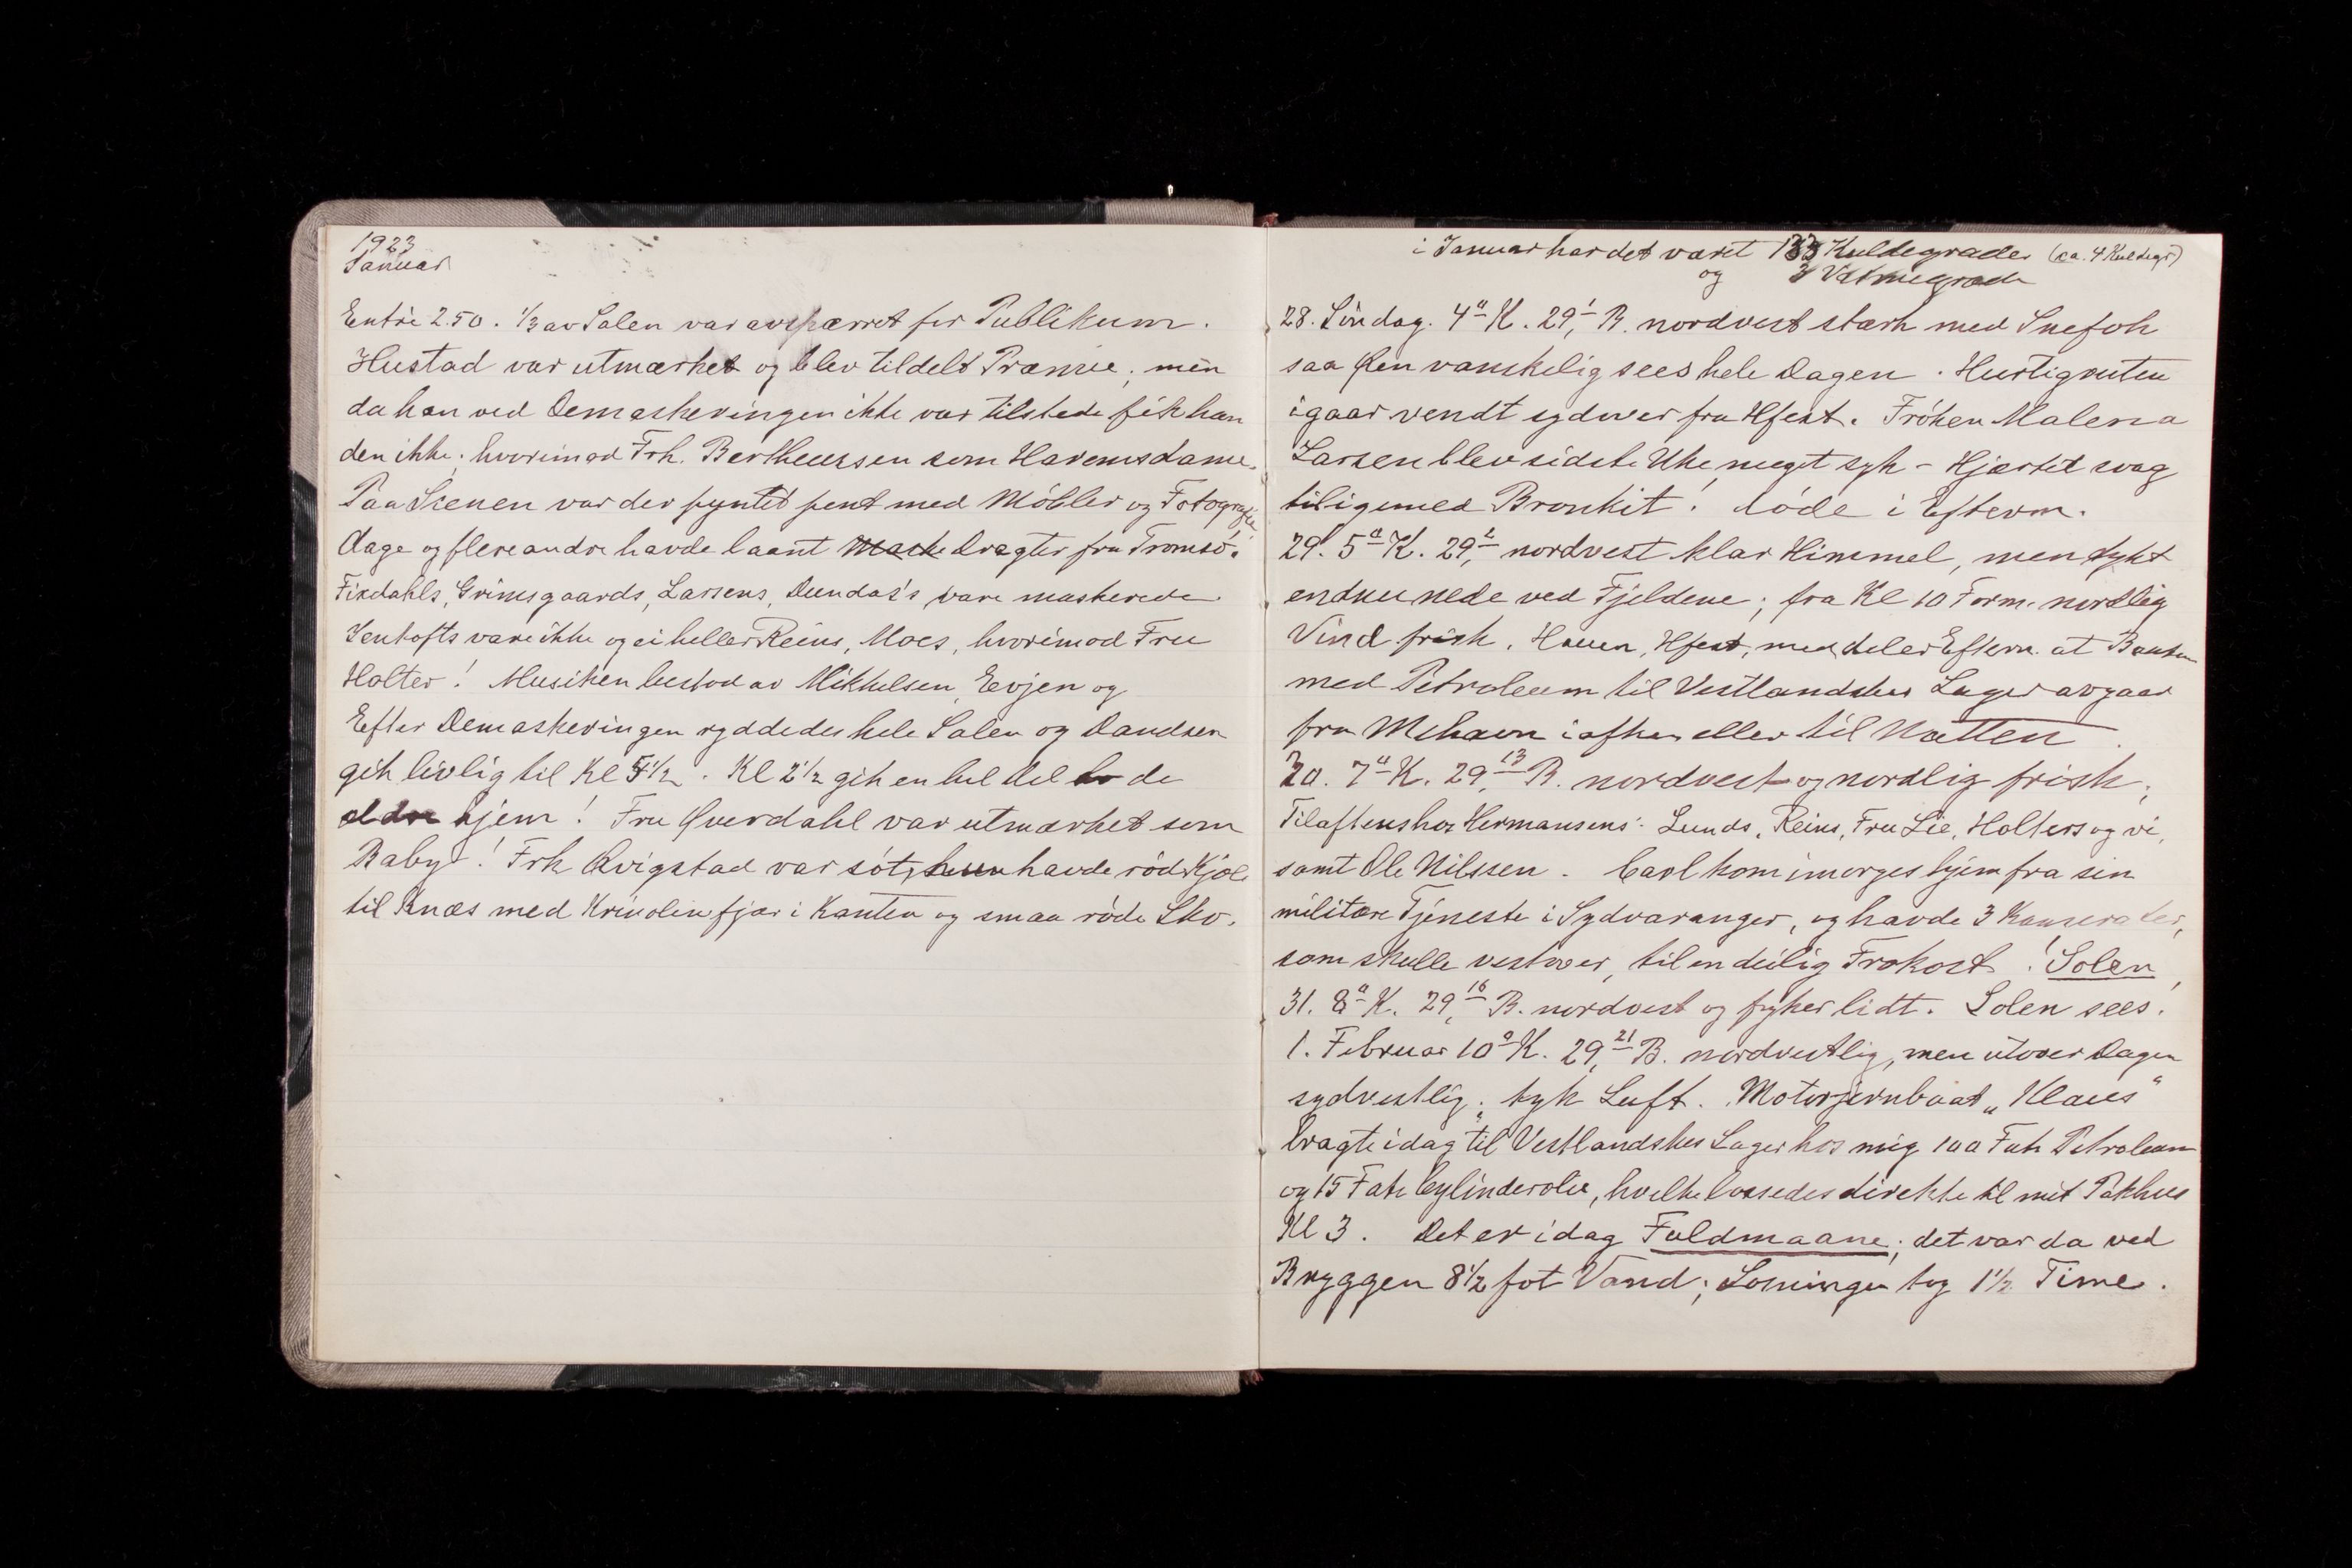 1923
Januar
Entré 2.50. 1/3 av Salen var avspærret for Publikum.
Hustad var utmærket og blev tildelt Præmie, men
da han ved Demaskeringen ikke var tilstede fik han
den ikke; hvorimod Frk. Bertheussen som Haremsdame.
Paa Scenen var der pyntet pent med Möbler og Fotografie.
Aage og flere andre havde laant Maskedragter fra Tromsö.
Fixdahls, Grimsgaards, Larsens, Dundas's vare maskerede.
Jentofts vare ikke og ei heller Reins, Moes, hvorimod Fru
Holter! Musiken bestod av Mikkelsen, Eevjen og
Efter Demaskeringen ryddedes hele Salen og Dandsen
gik livlig til Kl 5 1/2. Kl 2 1/2 gik en hel del de
eldre hjem! Fru Øverdahl var utmærket som
Baby! Frk Qvigstad var söt, hun havde röd Kjole
til Knæs med Krinolinefjær i Kanten og smaa röde Sko.
i Januar har det været 133 Kuldegrader (ca. 4 Kuldegr)
og 3 Varmegrade
28. Söndag. 4° K. 29,1 B. nordvest stærk med Snefok
saa Øen vanskelig sees hele Dagen. Hurtigruten
igaar vendt sydover fra Hfest. Fröken Malena
Larsen blev sidste Uke meget syk - Hjærtet svag
tilligemed Bronkit! döde i Efterm.
29. 5° K. 29,2 nordvest klar Himmel, men tykt
endnu nede ved Fjeldene; fra Kl 10 Form. nordlig
Vind frisk. Hauen, Hfest, meddeler Efterm. at Baaten
med Petroleum til Vestlandskes Lager avgaar
fra Mehavn iaften eller til Natten.
30. 7° K. 29,13 B. nordvest og nordlig frisk.
Tilaftens hos Hermansens: Lunds, Reins, Fru Lie, Holters og vi,
samt Ole Nilssen. Carl kom imorges hjem fra sin
militære Tjeneste i Sydvaranger, og havde 3 Kamerater,
som skulle vestover, til en deilig Frokost! Solen
31. 8° K. 29,16 B. nordvest og fyker lidt. Solen sees!
1. Februar 10° K. 29,21 B. nordvestlig, men utover Dagen
sydvestlig; tyk Luft. Motorjernbaat „Klaus"
bragte idag til Vestlandskes Lager hos mig 100 Fate Petroleum
og 15 Fate Cylinderolie, hvilke lossedes direkte til mit Pakhus
Kl 3. Det er idag Fuldmaane; det var da ved
Bryggen 8 1/2 fot Vand; Losningen tog 1 1/2 Time.